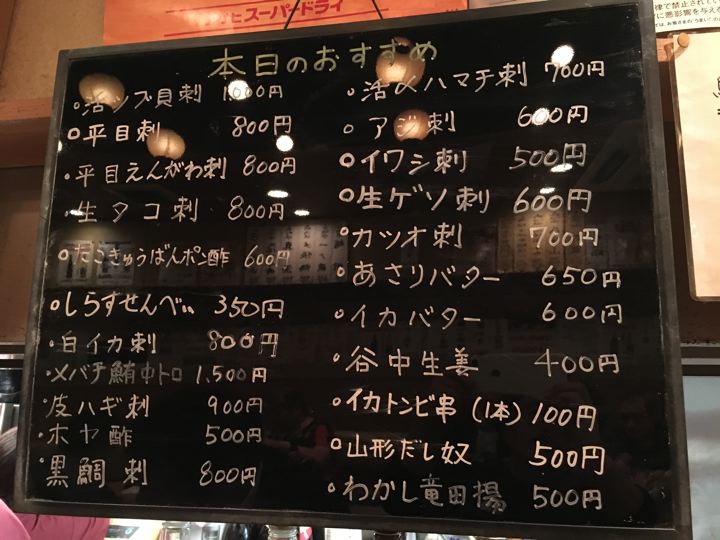 スーパードライ
本日のおすすめ
活ツブ貝刺 1,000円
平目刺 800円
平目えんがわ刺 800円
生タコ刺 800円
たこきゅうばんポン酢 600円
しらすせんべい 350円
白イカ刺 800円
メバチ鮪中トロ 1,500円
皮ハギ刺 900円
ホヤ酢 500円
黒鯛刺 800円
活〆ハマチ刺 700円
アジ刺 600円
イワシ刺 500円
生ゲソ刺 600円
カツオ刺 700円
あさりバター 650円
イカバター 600円
谷中生姜 400円
イカトンビ串 (1本) 100円
山形だし奴 500円
わかし竜田揚 500円